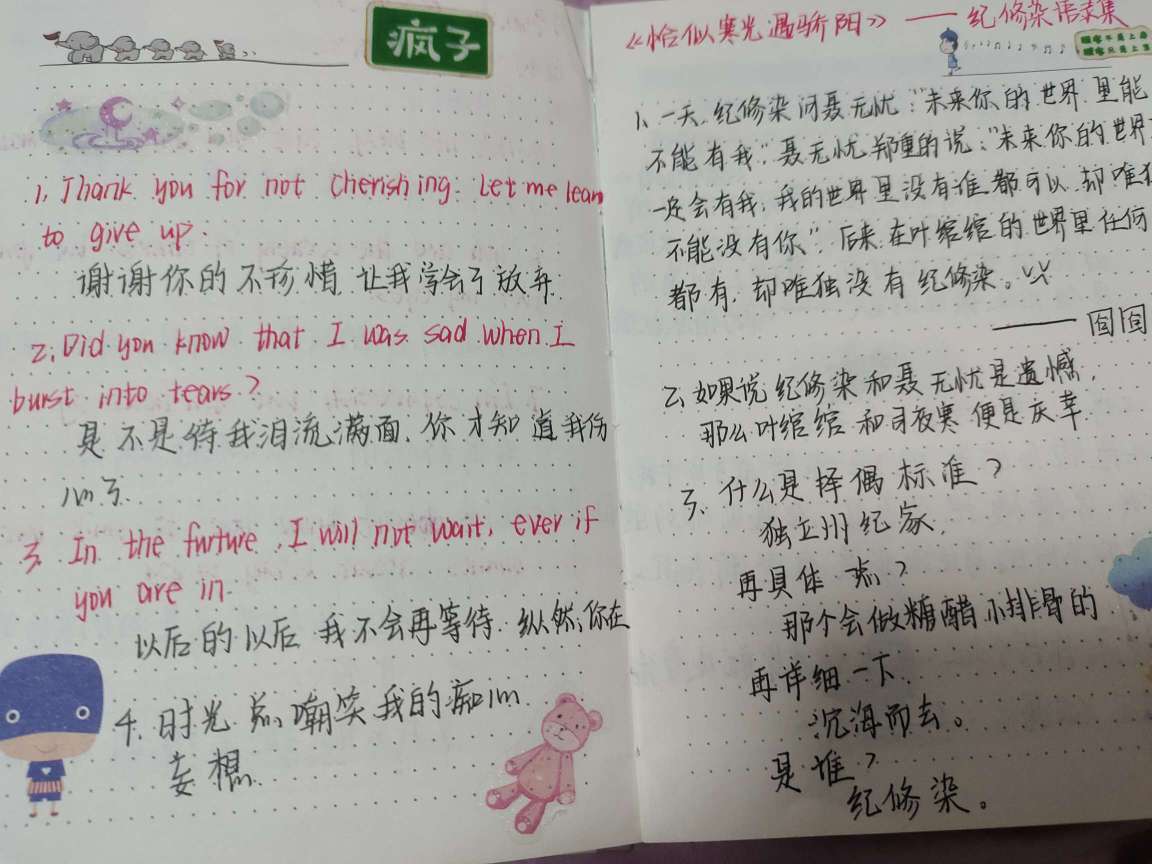 疯子
1. Thank you for not cherishing. Let me lean
to give up.
谢谢你的不珍惜 让我学会了放弃
2. Did you know that I was sad when I
burst into tears?
是不是待我泪流满面、你才知道我伤
心了.
3. In the furture, I will not wait, ever if
you are in.
以后的以后 我不会再等待. 纵然,你在
4. 时光 点 嘲笑我的痴心
妄想.
《恰似寒光遇骄阳》—— 纪修染语录集
1、一天, 纪修染问聂无忧:"未来你的世界里能
不能有我", 聂无忧郑重的说:"未来你的世界
一定会有我, 我的世界里没有谁都可以 却唯独
不能没有你" 后来 在叶绾绾的世界里任何
都有, 却唯独没有纪修染。
—— 囧囧
2、如果说纪修染和聂无忧是遗憾,
那么叶绾绾和司夜寒 便是庆幸.
3、什么是择偶标准?
独立州纪家.
再具体点?
那个会做糖醋小排骨的
再详细一下
沉海而去。
是谁?
纪修染。